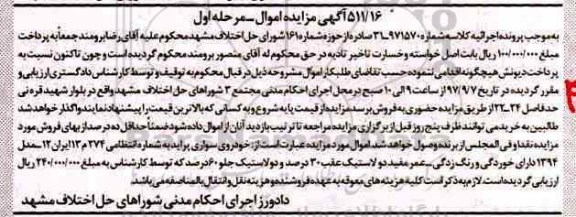 ۵۱۱/۱۶ آگهی مزایده اموال - مرحله اول
به موجب پرونده اجرائیه کلاسه شماره ۹۷۱۵۷۰-۳۱ صادره از حوزه شماره ۱۶۱ شورای حل اختلاف مشهد محکوم علیه آقای رضا برومند جمعاً به پرداخت
مبلغ ۱۰۰/۰۰۰/۰۰۰ ریال بابت اصل خواسته و خسارت تاخیر تادیه در حق محکوم له آقای منصور برومند محکوم گردیده است و چون تاکنون نسبت به
پرداخت دیونش هیچگونه اقدامی ننموده حسب تقاضای طلبکار اموال مشروحه ذیل در قبال محکوم به توقیف و توسط کارشناس دادگستری ارزیابی و
مقرر گردیده در تاریخ ۹۷/۹/۷ از ساعت ۹ الی ۱۰ صبح در محل اجرای احکام مدنی مجتمع ۳ شوراهای حل اختلاف مشهد واقع در بلوار شهید قره نی
حد فاصل ۲۴-۲۲ از طریق مزایده حضوری به فروش برسد مزایده از قیمت پایه شروع و به کسانی که بالاترین قیمت را پیشنهاد نمایند واگذار خواهد شد
طالبین به خرید می توانند ظرف پنج روز قبل از برگزاری مزایده مراجعه تا ترتیب بازدید آنان از اموال داده شود ضمناً حداقل ده درصد از بهای فروش مورد
مزایده نقدا و فی المجلس از برنده وصول خواهد شد. اموال مورد مزایده عبارت است از: خودروی سواری پراید به شماره انتظامی ۲۷۴ م ۱۳ ایران ۱۲ - مدل
۱۳۹۴ دارای خوردگی و رنگ زدگی - عمر مفید دو لاستیک عقب ۳۰ درصد و دو لاستیک جلو ۶۰ درصد که توسط کارشناس به مبلغ ۲۴۰/۰۰۰/۰۰۰ ریال
ارزیابی گردیده است. لازم به ذکر است کلیه هزینه های معوقه به عهده فروشنده و هزینه نقل و انتقال بالمناصفه می باشد.
دادورز اجرای احکام مدنی شوراهای حل اختلاف مشهد